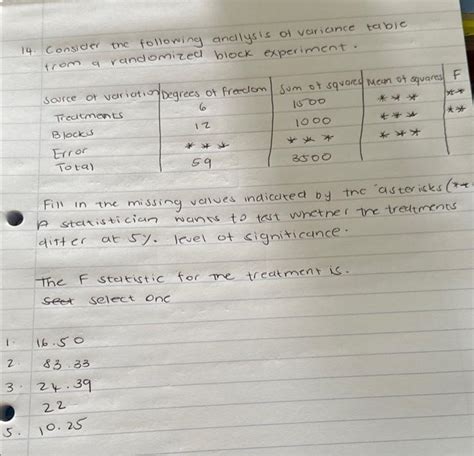 14. Consider the following analysis of variance table
from a randomized block experiment.
Source of variation Degrees of freedom Sum of squares Mean of squares F
Treatments 6 1500 *** **
Blocks 12 1000 *** **
Error *** *** ***
Total 59 3500
Fill in the missing values indicated by the asterisks (**
A statistician wants to test whether the treatments
differ at 5%. level of significance.
The F statistic for the treatment is.
Sect select one
1. 16.50
2. 83.33
3. 24.39
22
5. 10.25